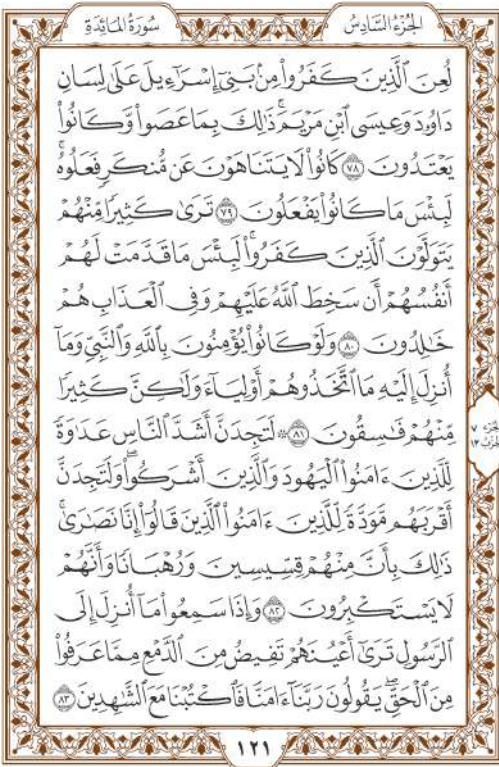 سُورَةُ المَائِدَةِ
الجُزْءُ السَّادِسُ
لُعِنَ ٱلَّذِينَ كَفَرُوا۟ مِنۢ بَنِىٓ إِسْرَٰٓءِيلَ عَلَىٰ لِسَانِ
دَاوُۥدَ وَعِيسَى ٱبْنِ مَرْيَمَ ۚ ذَٰلِكَ بِمَا عَصَوا۟ وَّكَانُوا۟
يَعْتَدُونَ ٧٨ كَانُوا۟ لَا يَتَنَاهَوْنَ عَن مُّنكَرٍ فَعَلُوهُ ۚ
لَبِئْسَ مَا كَانُوا۟ يَفْعَلُونَ ٧٩ تَرَىٰ كَثِيرًا مِّنْهُمْ
يَتَوَلَّوْنَ ٱلَّذِينَ كَفَرُوا۟ ۚ لَبِئْسَ مَا قَدَّمَتْ لَهُمْ
أَنفُسُهُمْ أَن سَخِطَ ٱللَّهُ عَلَيْهِمْ وَفِى ٱلْعَذَابِ هُمْ
خَٰلِدُونَ ٨٠ وَلَوْ كَانُوا۟ يُؤْمِنُونَ بِٱللَّهِ وَٱلنَّبِىِّ وَمَآ
أُنزِلَ إِلَيْهِ مَا ٱتَّخَذُوهُمْ أَوْلِيَآءَ وَلَٰكِنَّ كَثِيرًا
مِّنْهُمْ فَٰسِقُونَ ٨١ ۞ لَتَجِدَنَّ أَشَدَّ ٱلنَّاسِ عَدَٰوَةً
لِّلَّذِينَ ءَامَنُوا۟ ٱلْيَهُودَ وَٱلَّذِينَ أَشْرَكُوا۟ ۖ وَلَتَجِدَنَّ
أَقْرَبَهُم مَّوَدَّةً لِّلَّذِينَ ءَامَنُوا۟ ٱلَّذِينَ قَالُوٓا۟ إِنَّا نَصَٰرَىٰ ۚ
ذَٰلِكَ بِأَنَّ مِنْهُمْ قِسِّيسِينَ وَرُهْبَانًا وَأَنَّهُمْ
لَا يَسْتَكْبِرُونَ ٨٢ وَإِذَا سَمِعُوا۟ مَآ أُنزِلَ إِلَى
ٱلرَّسُولِ تَرَىٰٓ أَعْيُنَهُمْ تَفِيضُ مِنَ ٱلدَّمْعِ مِمَّا عَرَفُوا۟
مِنَ ٱلْحَقِّ ۖ يَقُولُونَ رَبَّنَآ ءَامَنَّا فَٱكْتُبْنَا مَعَ ٱلشَّٰهِدِينَ ٨٣
جُزْء ٧
حِزْب ١٣
١٢١